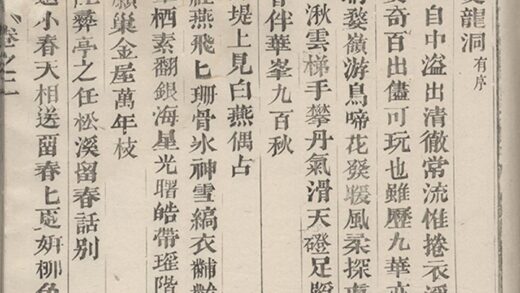 龍洞有序
自中溢出清徹常流惟捲衣
奇百出儘可玩也雖歷九華
婺嶺游鳥啼花發暖風柔探
湫雲梯手攀丹氣滑天磴足
伴華峯九百秋
堤上見白燕偶占
燕飛匕珊骨氷神雪縞衣黼
栖素翻銀海星光曙皓帶璀階
巢金屋萬年枝
彝亭之任松溪留春話別
小春天相送畱春匕更妍柳色
卷之